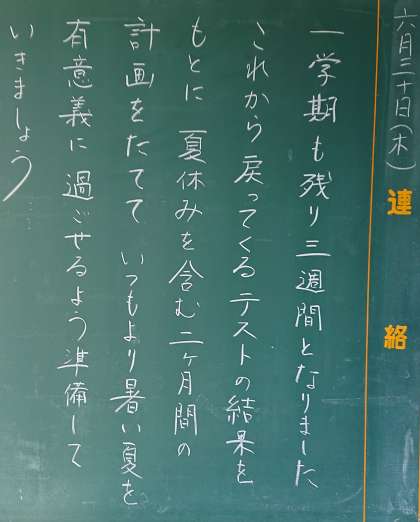 六月三十日(木)
連絡
一学期も残り三週間となりました
これから戻ってくるテストの結果を
もとに 夏休みを含む二ヶ月間の
計画をたてて いつもより暑い夏を
有意義に 過ごせるよう準備して
いきましょう……